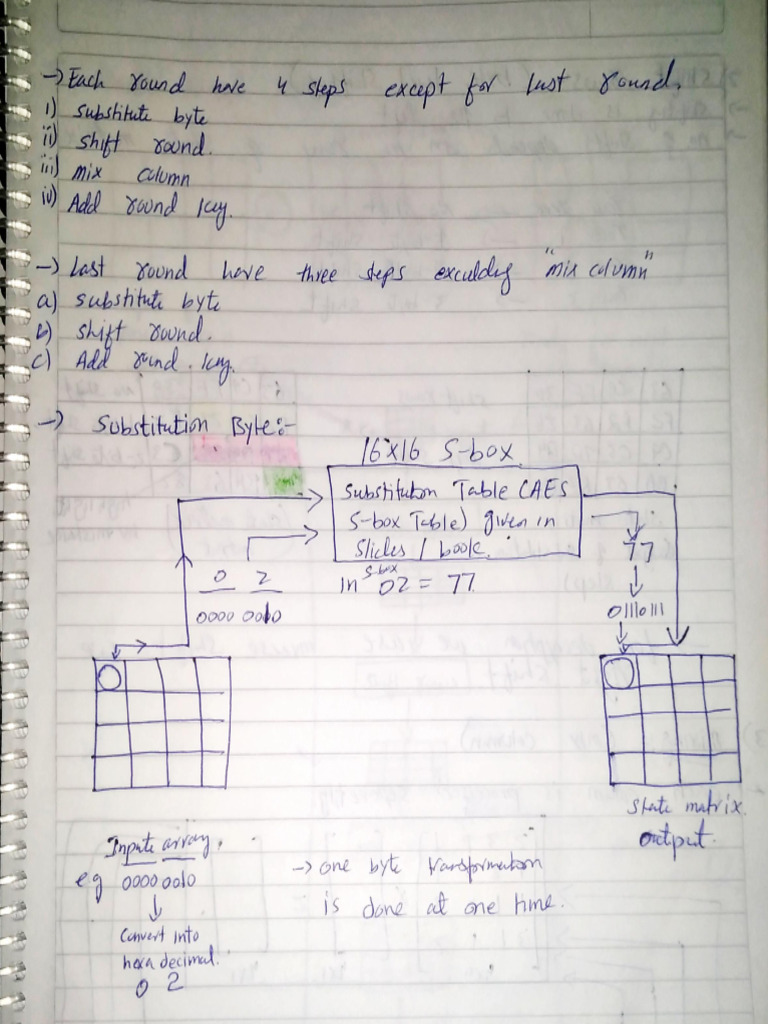 → Each round have 4 steps except for last round.
i) substitute byte
ii) shift round.
iii) mix column
iv) Add round key.
→ Last round have three steps exculding "mix column"
a) substitute byte
b) shift round.
c) Add round key.
→ Substitution Byte:-
16x16 S-box
Substitution Table (AES
S-box Table) given in
Slides / book.
0 2
0000 0010
in S-box 02 = 77
77
01110111
State matrix
output.
Inpute array.
eg 0000 0010
Convert into
hexa decimal.
0 2
→ one byte transformation
is done at one time.